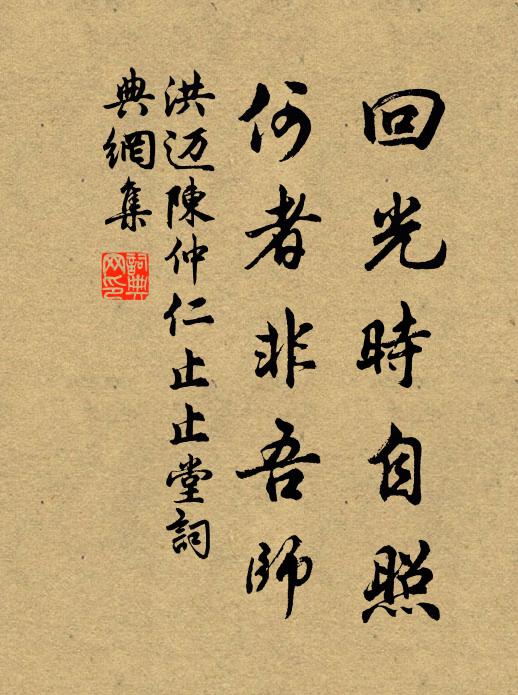 回光時自照
何者非吾師
洪迈陳仲仁止止堂詞
典網集
詞典
网印